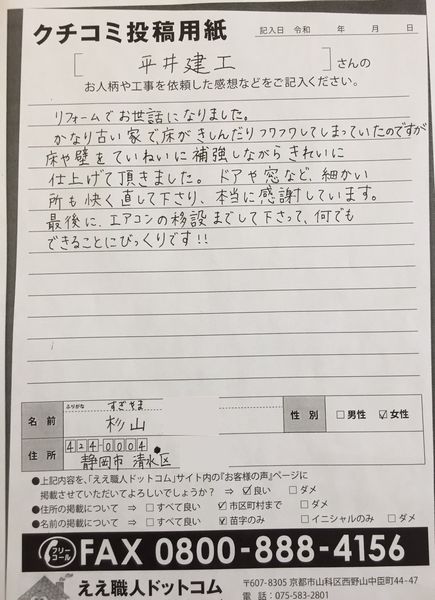 クチコミ投稿用紙
記入日 令和 年 月 日
[ 平井建工 ] さんの
お人柄や工事を依頼した感想などをご記入ください。
リフォームでお世話になりました。
かなり古い家で床がきしんだりフワフワしてしまっていたのですが
床や壁をていねいに補強しながらきれいに
仕上げて頂きました。ドアや窓など、細かい
所も快く直して下さり、本当に感謝しています。
最後に、エアコンの移設までして下さって、何でも
できることにびっくりです!!
ふりがな すぎやま
名前 杉山
性別 □男性 ☑女性
住所 424-0004
静岡市 清水区
●上記内容を、「ええ職人ドットコム」サイト内の『お客様の声』ページに
掲載させていただいてよろしいでしょうか? ⇒ ☑良い □ダメ
●住所の掲載について ⇒ □すべて良い ☑市区町村まで □ダメ
●名前の掲載について ⇒ □すべて良い ☑苗字のみ □イニシャルのみ □ダメ
フリーコール FAX 0800-888-4156
ええ職人ドットコム
〒607-8305 京都市山科区西野山中臣町44-47
電話:075-583-2801